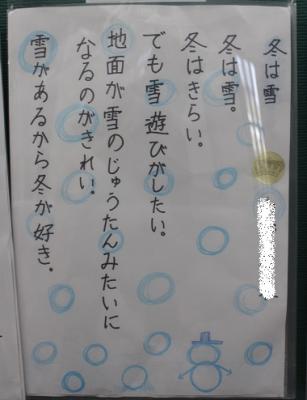 冬は雪
冬は雪。
冬はきらい。
でも雪遊びがしたい。
地面が雪のじゅうたんみたいに
なるのがきれい。
雪があるから冬が好き。